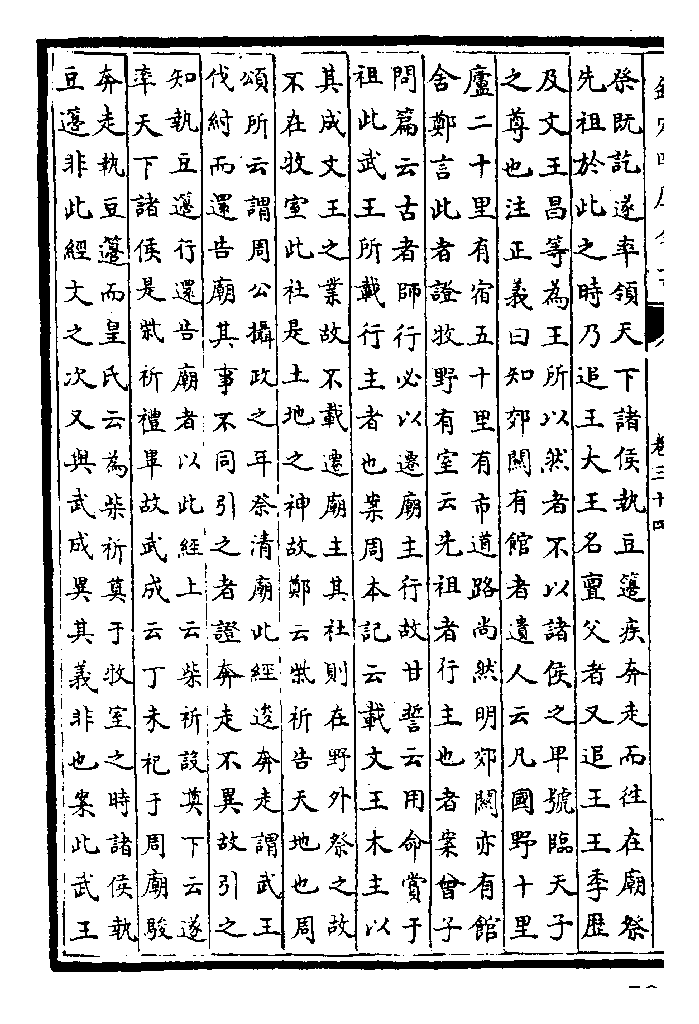 卷三十四
祭既訖遂率領天下諸侯執豆籩疾奔走而往在廟祭
先祖於此之時乃追王大王名亶父者又追王王季歴
及文王昌等為王所以然者不以諸侯之卑號臨天子
之尊也注正義曰知郊關有館者遺人云凡國野十里
廬二十里有宿五十里有市道路尚然明郊關亦有館
舍鄭言此者證牧野有室云先祖者行主也者案曾子
問篇云古者師行必以遷廟主行故甘誓云用命賞于
祖此武王所載行主者也案周本記云載文王木主以
其成文王之業故不載遷廟主其社則在野外祭之故
不在牧室此社是土地之神故鄭云祡祈告天地也周
頌所云謂周公攝政之年祭清廟此經逡奔走謂武王
伐紂而還告廟其事不同引之者證奔走不異故引之
知執豆籩行還告廟者以此經上云柴祈設奠下云遂
率天下諸侯是祡祈禮畢故武成云丁未祀于周廟駿
奔走執豆籩而皇氏云為柴祈奠于牧室之時諸侯執
豆籩非此經文之次又與武成異其義非也案此武王